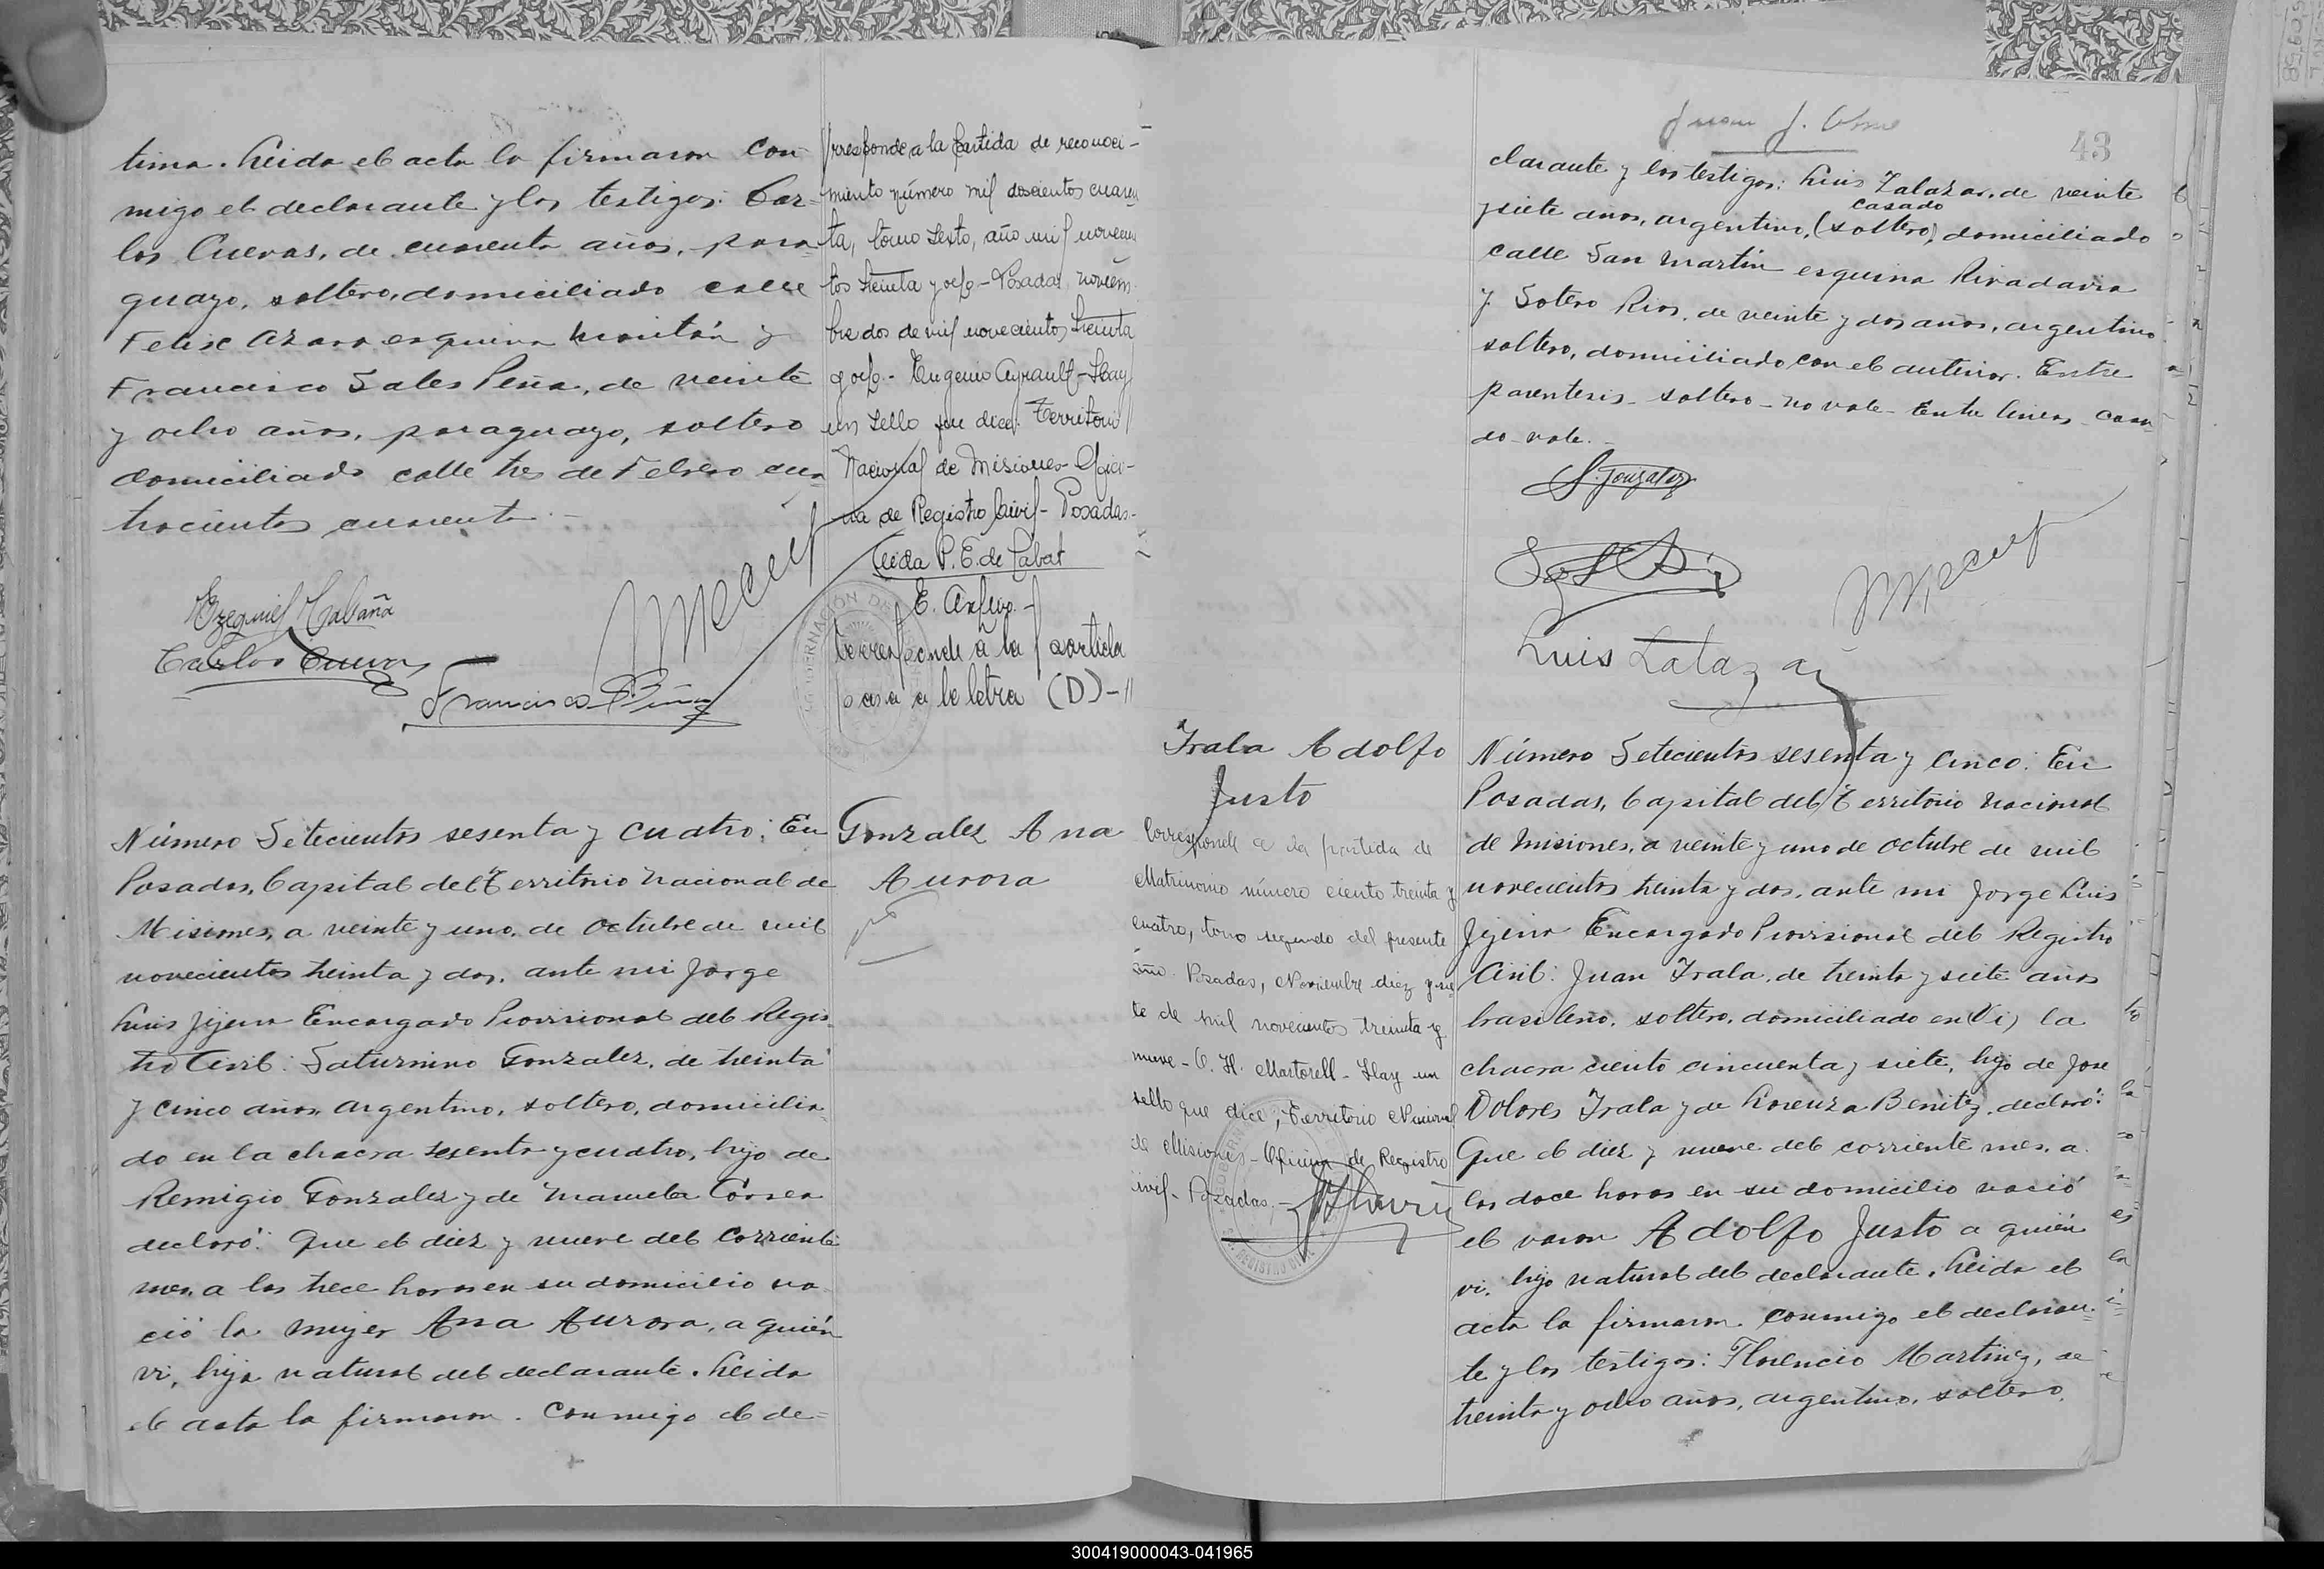 tima. Leida el acta la firmaron con-
migo el declarante y los testigos: Car-
los Cuevas, de cuarenta años, para-
guayo, soltero, domiciliado calle
Felix Azara esquina Maitán y
Francisco Sales Peña, de veinte
y ocho años, paraguayo, soltero
domiciliado calle tres de Febrero cua-
trocientos cuarenta.-
Ezequiel Cabaña
Carlos Cuevas
Francisco Piña
rresponde a la partida de reconoci-
miento número mil doscientos cuaren
ta, tomo sexto, año mil novecien
tos treinta y ocho - Posadas noviem-
bre dos de mil novecientos treinta
y ocho.- Eugenio Ayrault - Hay
un sello que dice: Territorio
Nacional de Misiones - Ofici-
na de Registro Civil - Posadas.-
Leida P. E. de Cabat
Corresponde a la partida
pasa a la letra (D) - "
Número Setecientos sesenta y cuatro: En
Posadas, Capital del Territorio Nacional de
Misiones, a veinte y uno de Octubre de mil
novecientos treinta y dos, ante mi Jorge
Luis Jijena Encargado Provisional del Regis-
tro Civil: Saturnino Gonzalez, de treinta
y cinco años, argentino, soltero, domicilia-
do en la chacra sesenta y cuatro, hijo de
Remigio Gonzalez y de Manuela Correa
declaró: Que el diez y nueve del corriente
mes, a las trece horas en su domicilio na-
ció la mujer Ana Aurora, a quién
vi, hija natural del declarante. Leida
el acta la firmaron. Conmigo el de=
Gonzalez Ana
Aurora
Juan J.
43
clarante y los testigos: Luis Zalazar, de veinte
casado
y siete años, argentino, (soltero) domiciliado
calle San Martín esquina Rivadavia
y Sotero Rios, de veinte y dos años, argentino
soltero, domiciliado con el anterior. Entre
parentesis - soltero - no vale - Entre lineas - casa-
do - vale.-
S. Gonzalez
Luis Lalazar
Irala Adolfo
Justo
Corresponde a la partida de
Matrimonio número ciento treinta y
cuatro, tomo segundo del presente
año. Posadas, Noviembre diez y sie
te de mil novecientos treinta y
nueve - O. H. Martorell - Hay un
sello que dice; Territorio Nacional
de Misiones - Oficina de Registro
Civil - Posadas.-
Número Setecientos sesenta y cinco: En
Posadas, Capital del Territorio Nacional
de Misiones, a veinte y uno de Octubre de mil
novecientos treinta y dos, ante mi Jorge Luis
Jijena Encargado Provisional del Registro
Civil: Juan Irala, de treinta y siete años
brasileno, soltero, domiciliado en (Vi) la
chacra ciento cincuenta y siete, hijo de Jose
Dolores Irala y de Lorenza Benitez, declaró:
Que el diez y nueve del corriente mes, a
las doce horas en su domicilio nació
el varon Adolfo Justo a quién
vi, hijo natural del declarante, Leida el
acta la firmaron. Conmigo el declaran-
te y los testigos: Florencio Martinez, de
treinta y ocho años, argentino, soltero,
300419000043-041965